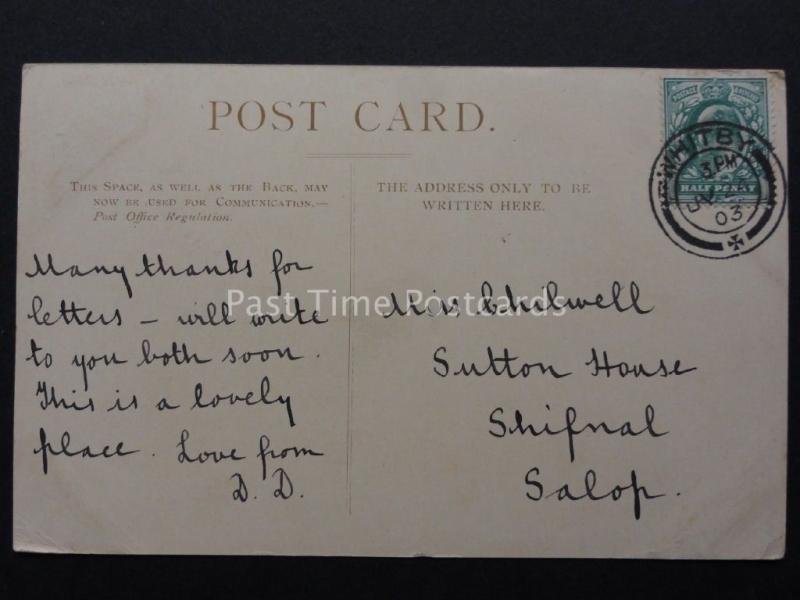 POST CARD.
THIS SPACE, AS WELL AS THE BACK, MAY
NOW BE USED FOR COMMUNICATION.—
Post Office Regulation.
THE ADDRESS ONLY TO BE
WRITTEN HERE.
HALF PENNY
WHITBY
3. PM
03
Many thanks for
letters – will write
to you both soon.
This is a lovely
place. Love from
D. D.
Miss Chilwell
Sutton House
Shifnal
Salop.
Past Time Postcards